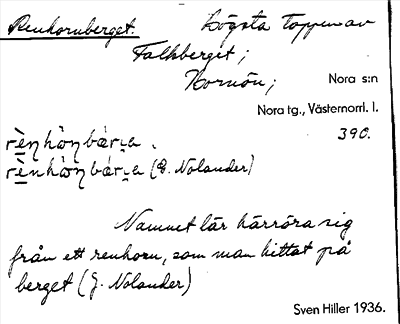 Renhornberget. Högsta toppen av
Falkberget;
Hornön; Nora s:n
Nora tg., Västernorrl. l.
390.
(E. Nolander)
Namnet lär härröra sig
från ett renhorn, som man hittat på
berget (J. Nolander)
Sven Hiller 1936.